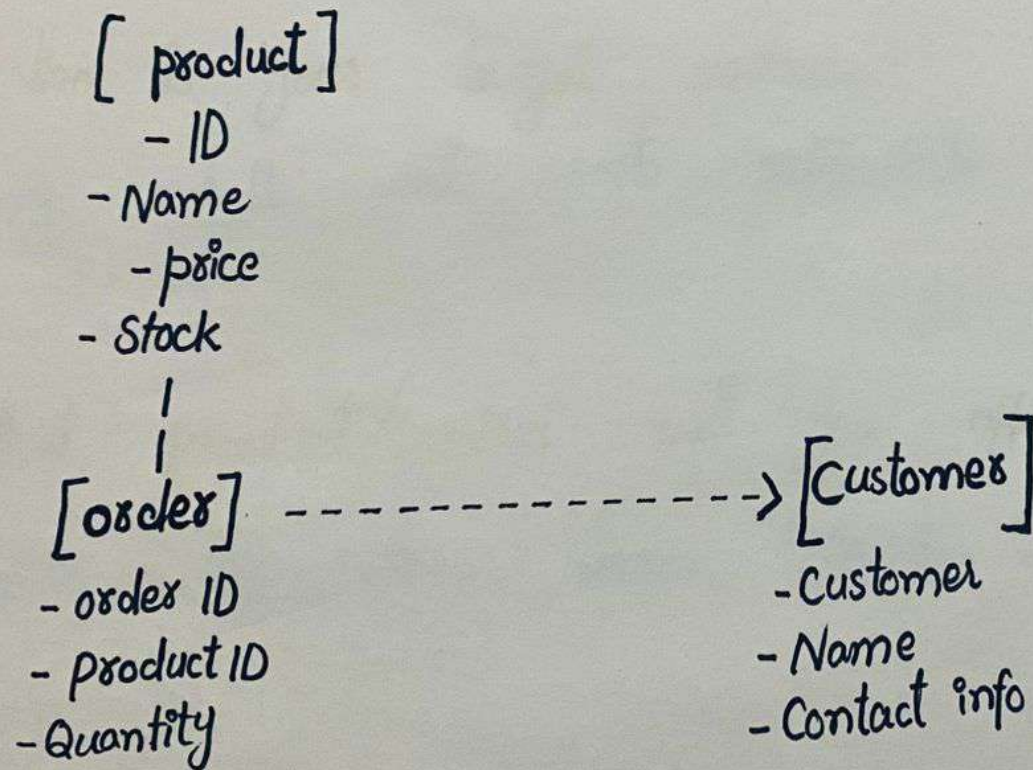 [ product ]
- ID
- Name
- price
- Stock
[order] --------------> [Customer]
- order ID
- product ID
- Quantity
- Customer
- Name
- Contact info